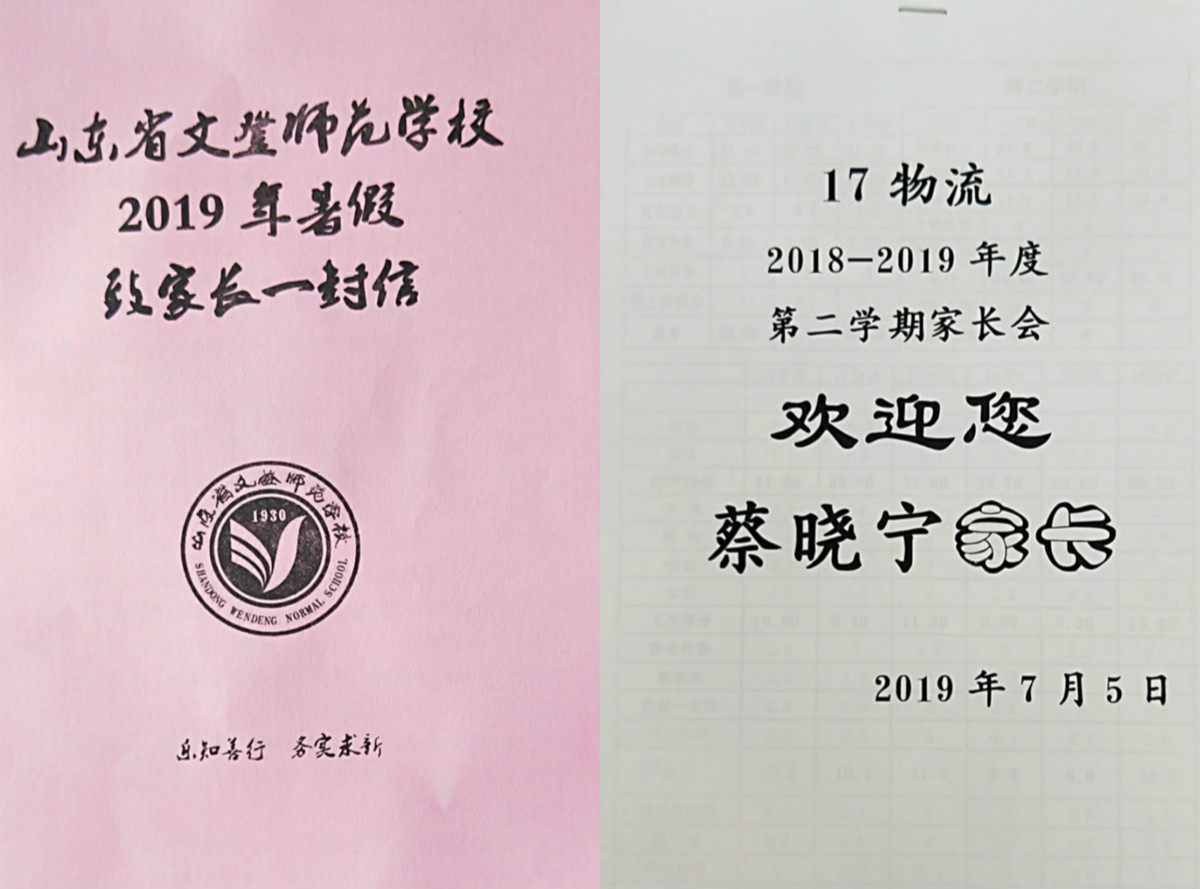 山东省文登师范学校
2019年暑假
致家长一封信
山东省文登师范学校
1930
SHANDONG WENDENG NORMAL SCHOOL
乐知善行 务实求新
17物流
2018-2019年度
第二学期家长会
欢迎您
蔡晓宁家长
2019年7月5日